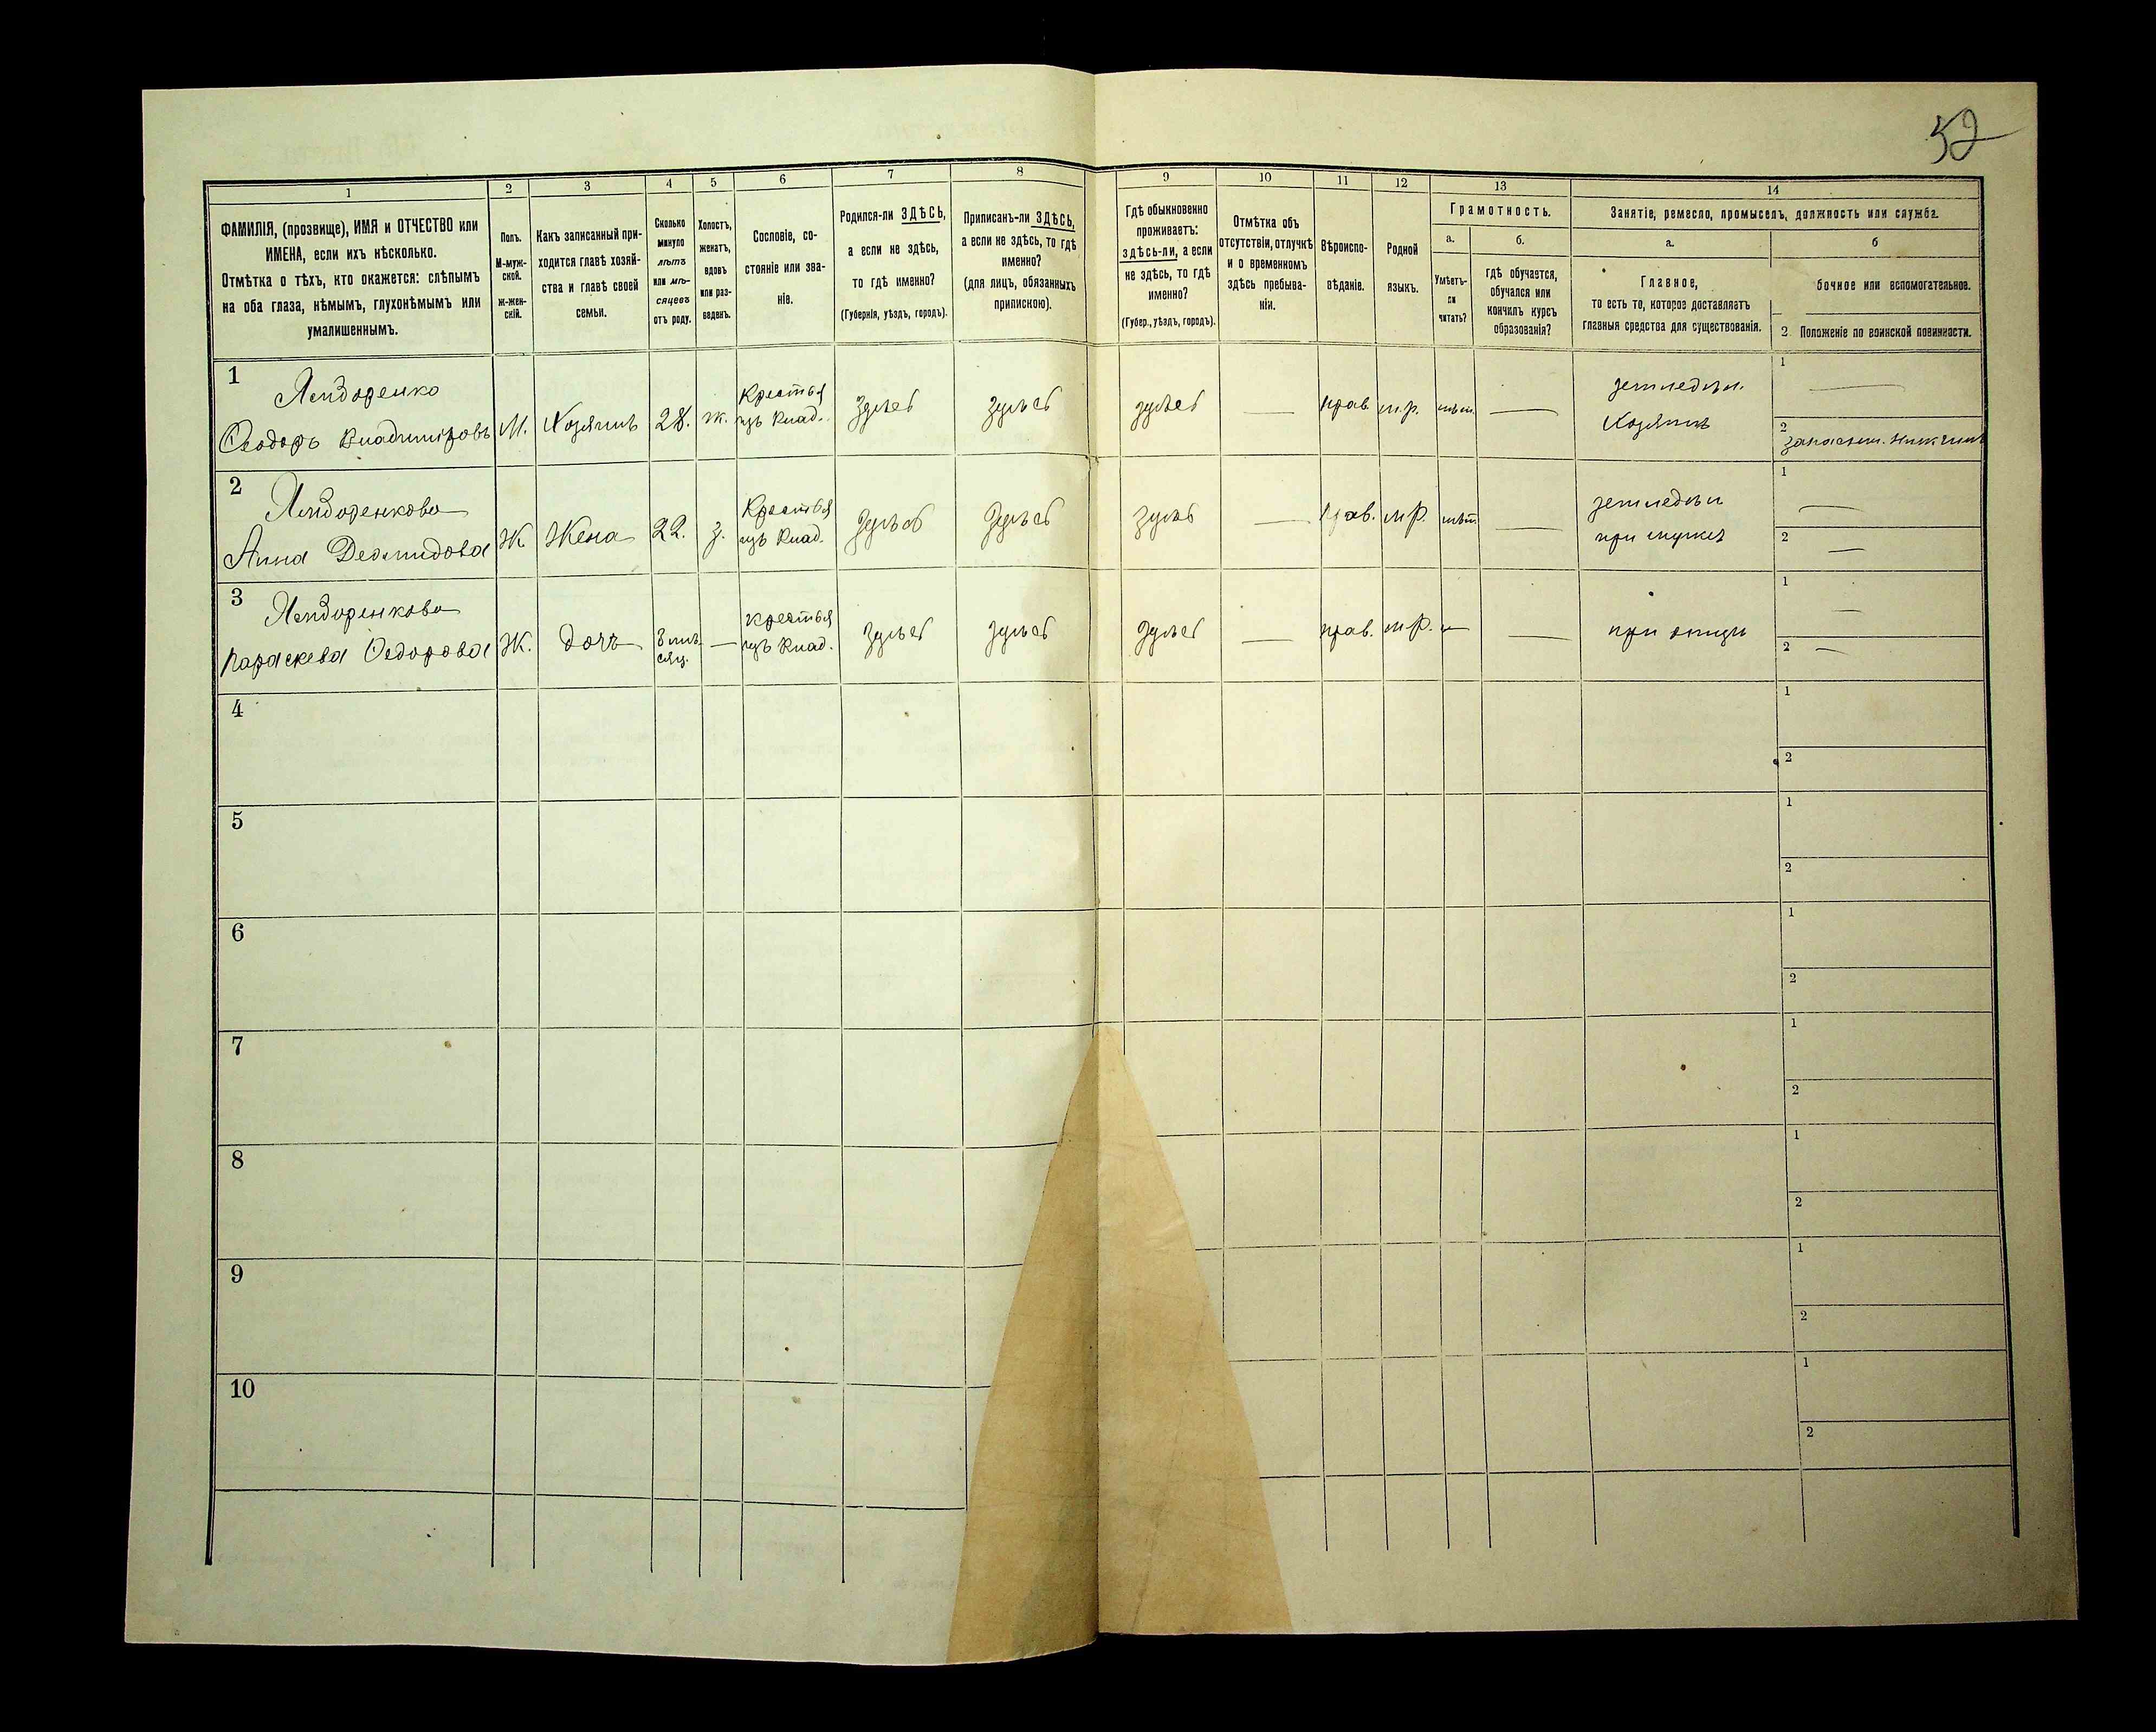 52
1 2 3 4 5 6 7 8 9 10 11 12 13 14
ФАМИЛІЯ, (прозвище), ИМЯ и ОТЧЕСТВО или
ИМЕНА, если ихъ нѣсколько.
Отмѣтка о тѣхъ, кто окажется: слѣпымъ
на оба глаза, нѣмымъ, глухонѣмымъ или
умалишеннымъ.
Полъ.
М-муж-
ской.
ж-жен-
скій.
Какъ записанный при-
ходится главѣ хозяй-
ства и главѣ своей
семьи.
Сколько
минуло
лѣтъ
или мѣ-
сяцевъ
отъ роду.
Холостъ,
женатъ,
вдовъ
или раз-
веденъ.
Сословіе, со-
стояніе или зва-
ніе.
Родился-ли ЗДѢСЬ,
а если не здѣсь,
то гдѣ именно?
(Губернія, уѣздъ, городъ).
Приписанъ-ли ЗДѢСЬ,
а если не здѣсь, то гдѣ
именно?
(для лицъ, обязанныхъ
припискою).
Гдѣ обыкновенно
проживаетъ:
здѣсь-ли, а если
не здѣсь, то гдѣ
именно?
(Губер., уѣздъ, городъ).
Отмѣтка объ
отсутствіи, отлучкѣ
и о временномъ
здѣсь пребыва-
ніи.
Вѣроиспо-
вѣданіе.
Родной
языкъ.
Грамотность.
а.
Умѣетъ-
ли
читать?
б.
гдѣ обучается,
обучался или
кончилъ курсъ
образованія?
Занятіе, ремесло, промыселъ, должность или служба.
а.
Главное,
то есть то, которое доставляетъ
главныя средства для существованія.
б
бочное или вспомогательное.
2 Положеніе по воинской повинности.
1
Феодоръ Владиміровъ
М. Хозяинъ 28. ж.
Крестья
изъ Влад.
здѣсь здѣсь здѣсь — прав. м.р. нѣт. —
земледѣл.
Хозяинъ
1 —
2
2
Анна Демидова
Ж Жена 22. з.
Крестья
изъ Влад.
Здѣсь Здѣсь здѣсь — Прав. м.р. нѣт. —
земледѣл
при мужѣ
1 —
2 —
3
Параскева Ѳедорова
Ж. дочь
мѣ-
сяц.
—
крестья
изъ Влад.
здѣсь здѣсь здѣсь — прав. м.р. — —
при отцѣ
1 —
2 —
4 1
2
5 1
2
6 1
2
7 1
2
8 1
2
9 1
2
10 1
2